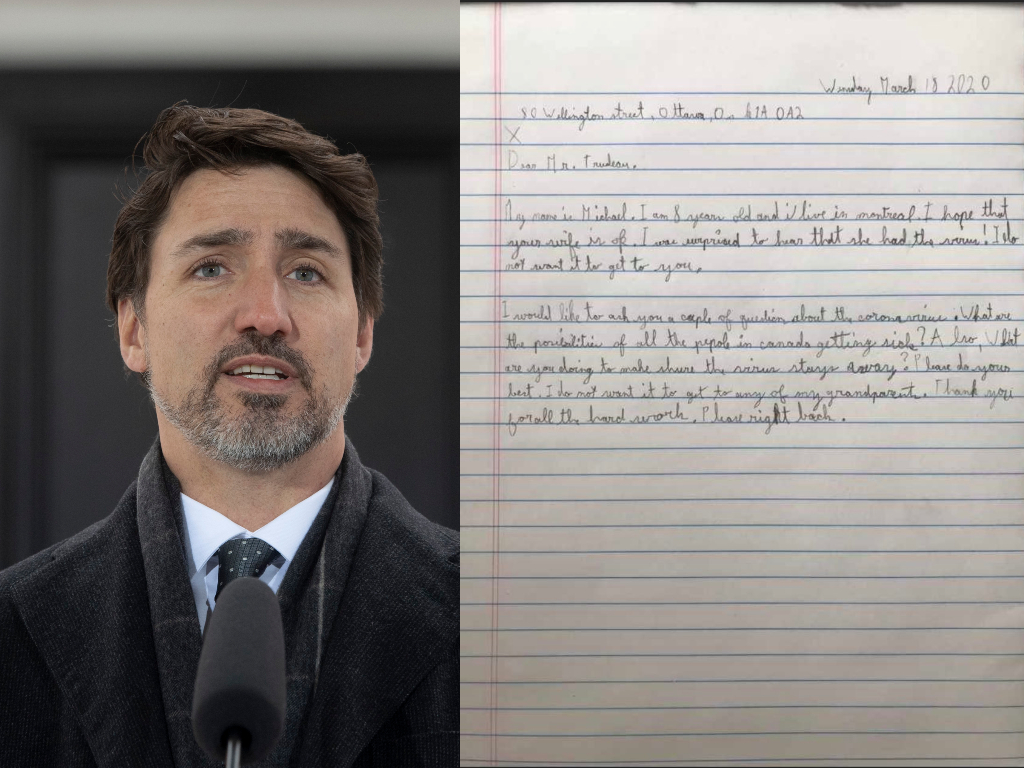 Wenday March 18 2020
80 Wellington street, Ottawa, On K1A 0A2
X
Dear Mr. Trudeau,
My name is Michael. I am 8 years old and i live in montreal. I hope that
your wife is ok. I was surprised to hear that she had the virus! I do
not want it to get to you.
I would like to ask you a cople of question about the corona virus. What are
the posibilities of all the pepole in canada getting sick? Also, What
are you doing to make shure the virus stays away? Please do your
best. I do not want it to get to any of my grandparents. Thank you
for all the hard work. Please right back.